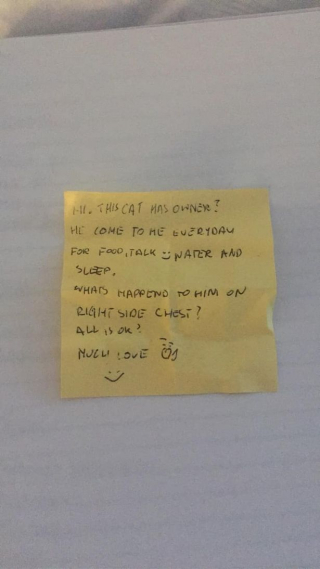 HI. THIS CAT HAS OWNER?
HE COME TO ME EVERYDAY
FOR FOOD, TALK :) WATER AND
SLEEP.
WHATS HAPPEND TO HIM ON
RIGHT SIDE CHEST?
ALL IS OK?
MUCH LOVE